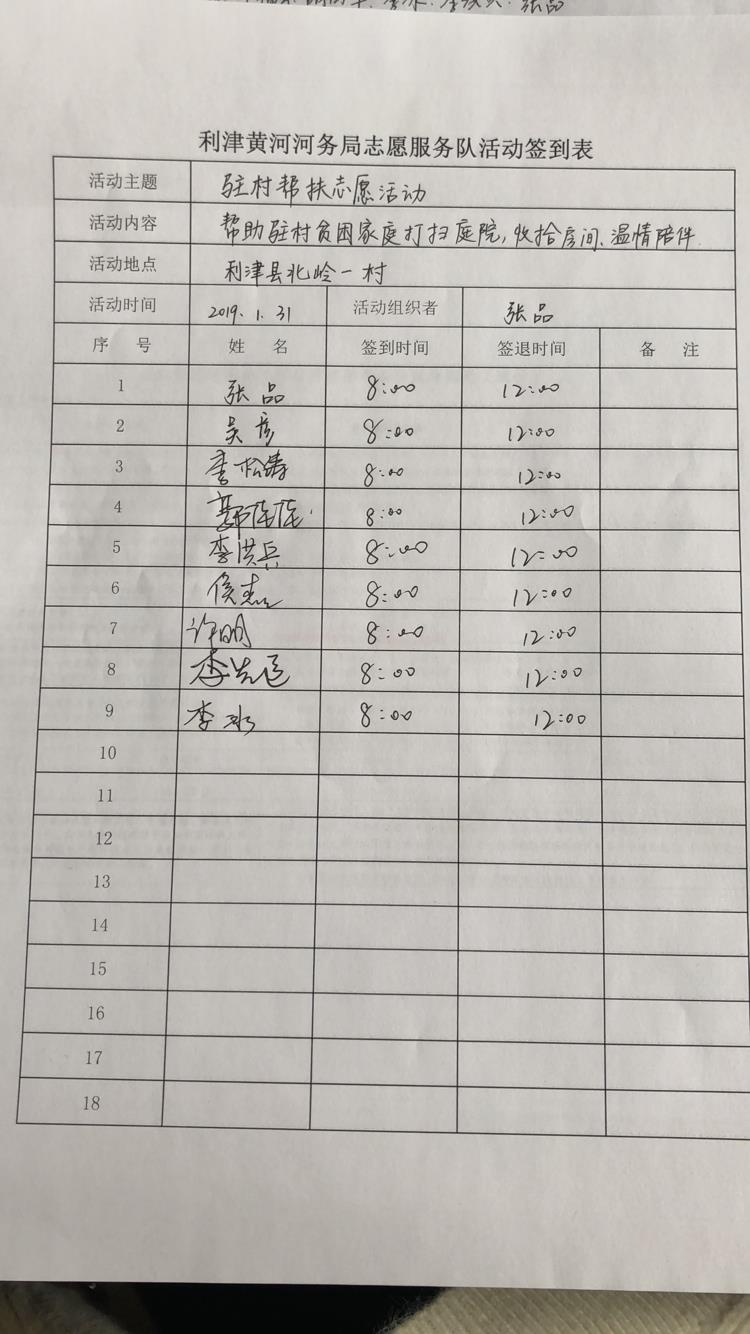 张品
利津黄河河务局志愿服务队活动签到表
活动主题 驻村帮扶志愿活动
活动内容 帮助驻村贫困家庭打扫庭院,收拾房间、温情陪伴.
活动地点 利津县北岭一村
活动时间 2019.1.31 活动组织者 张品
序 号 姓 名 签到时间 签退时间 备 注
1 张品 8:00 12:00
2 吴彦 8:00 12:00
3 李松涛 8:00 12:00
4 8:00 12:00
5 李洪兵 8:00 12:00
6 侯杰 8:00 12:00
7 许明 8:00 12:00
8 李 8:00 12:00
9 李冰 8:00 12:00
10
11
12
13
14
15
16
17
18